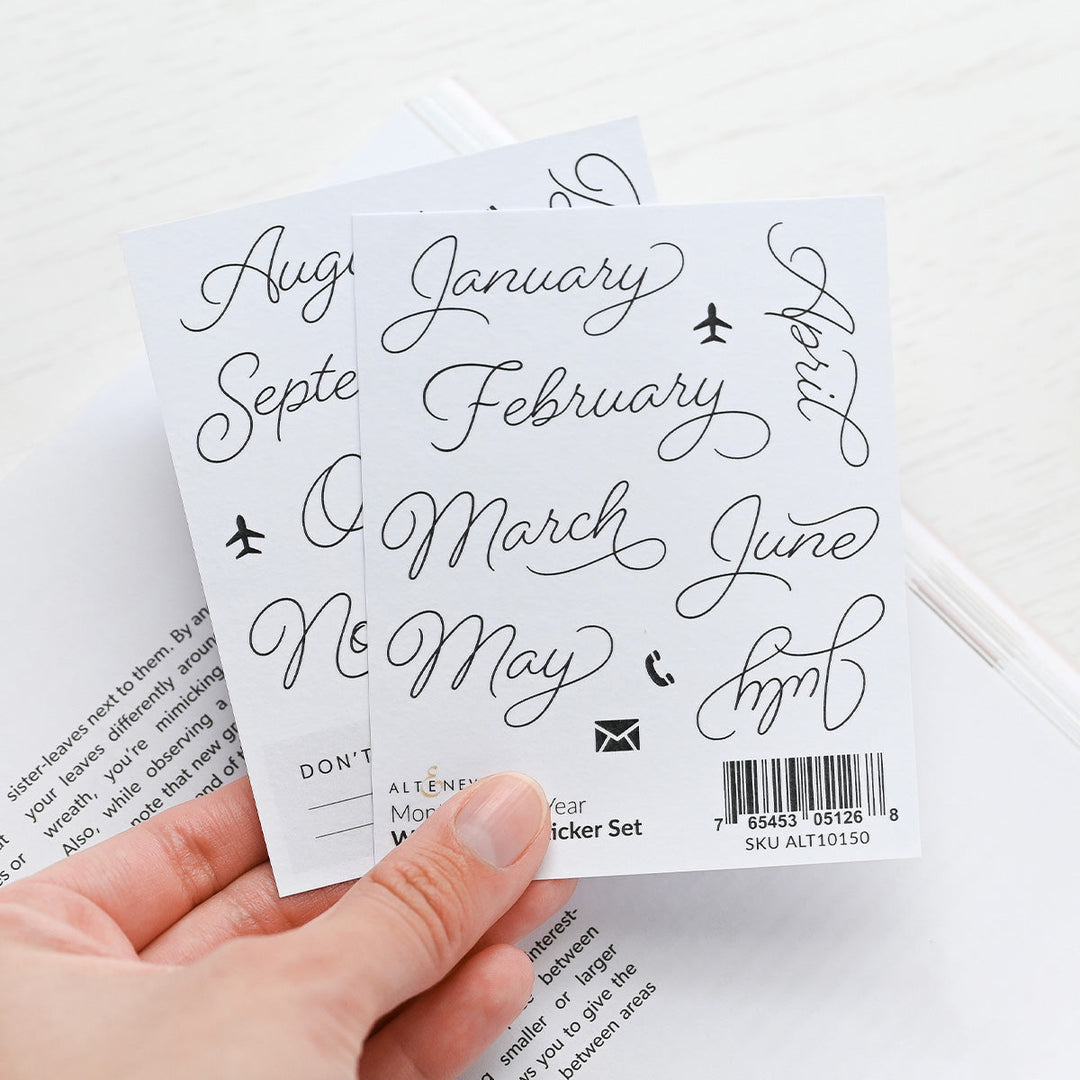 January
February
March
May
April
June
July
ALTENEW
Mon Year
W icker Set
7 65453 05126 8
SKU ALT10150
Augu
Septe
O
No
DON'T
sister-leaves next to them. By an
your leaves differently aroun
wreath, you're mimicking
Also, while observing a
note that new gr
end of t
es or
interest-
between
smaller or larger
ws you to give the
between areas